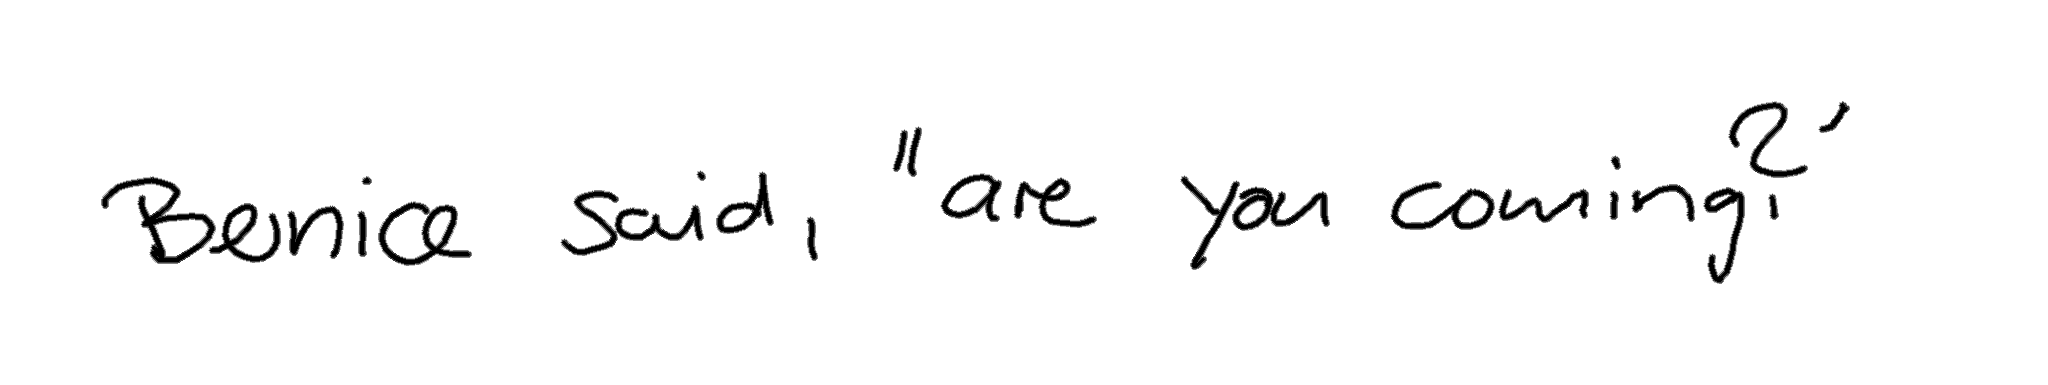 Benice said, "are you coming?'